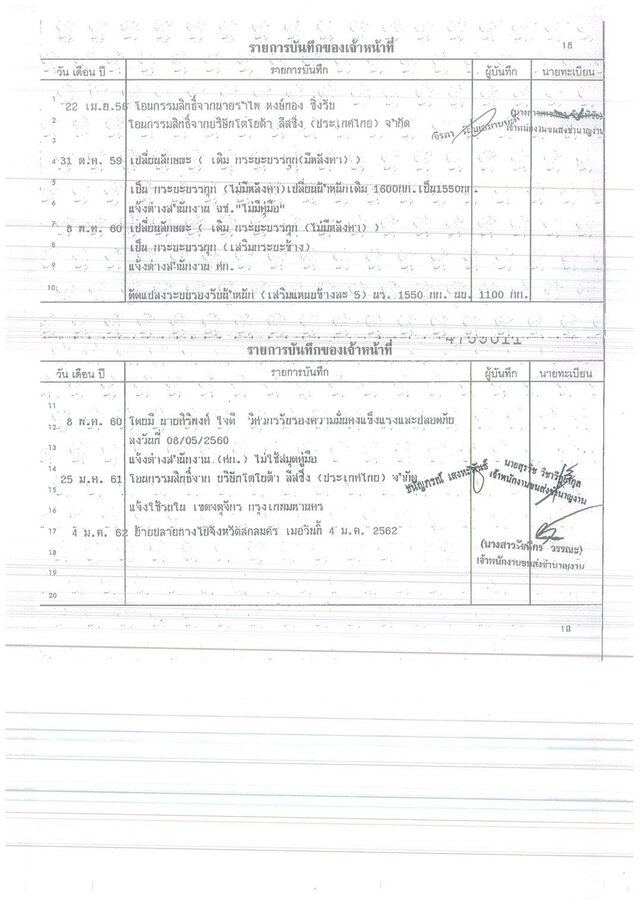 18
รายการบันทึกของเจ้าหน้าที่
วัน เดือน ปี รายการบันทึก ผู้บันทึก นายทะเบียน
1
2 22 เม.ย.56 โอนกรรมสิทธิ์จากนายรำไพ หงษ์ทอง ซึ่งรับ
โอนกรรมสิทธิ์จากบริษัทโตโยต้า ลีสซิ่ง (ประเทศไทย) จำกัด
เจ้าพนักงานขนส่งชำนาญงาน
3
4 31 ต.ค. 59 เปลี่ยนลักษณะ ( เดิม กระบะบรรทุก(มีหลังคา) )
5 เป็น กระบะบรรทุก (ไม่มีหลังคา)เปลี่ยนน้ำหนักเดิม 1600กก.เป็น1550กก.
6 แจ้งต่างสำนักงาน ฉช."ไม่มีคู่มือ"
7 8 พ.ค. 60 เปลี่ยนลักษณะ ( เดิม กระบะบรรทุก (ไม่มีหลังคา) )
8 เป็น กระบะบรรทุก (เสริมกระบะข้าง)
9 แจ้งต่างสำนักงาน ศก.
10 ดัดแปลงระบบรองรับน้ำหนัก (เสริมแหนบข้างละ 5) นร. 1550 กก. นบ. 1100 กก.
รายการบันทึกของเจ้าหน้าที่
วัน เดือน ปี รายการบันทึก ผู้บันทึก นายทะเบียน
11
12 8 พ.ค. 60 โดยมี นายศิริพงศ์ ใจดี วิศวกรรับรองความมั่นคงแข็งแรงและปลอดภัย
13 ลงวันที่ 08/05/2560
14 แจ้งต่างสำนักงาน (ศก.) ไม่ใช้สมุดคู่มือ
15 25 ม.ค. 61 โอนกรรมสิทธิ์จาก บริษัทโตโยต้า ลีสซิ่ง (ประเทศไทย) จำกัด
เจ้าพนักงานขนส่งชำนาญงาน
16 แจ้งใช้รถใน เขตจตุจักร กรุงเทพมหานคร
17 4 ม.ค. 62 ย้ายปลายทางไปจังหวัดสกลนคร เมื่อวันที่ 4 ม.ค. 2562
18
เจ้าพนักงานขนส่งชำนาญงาน
19
20